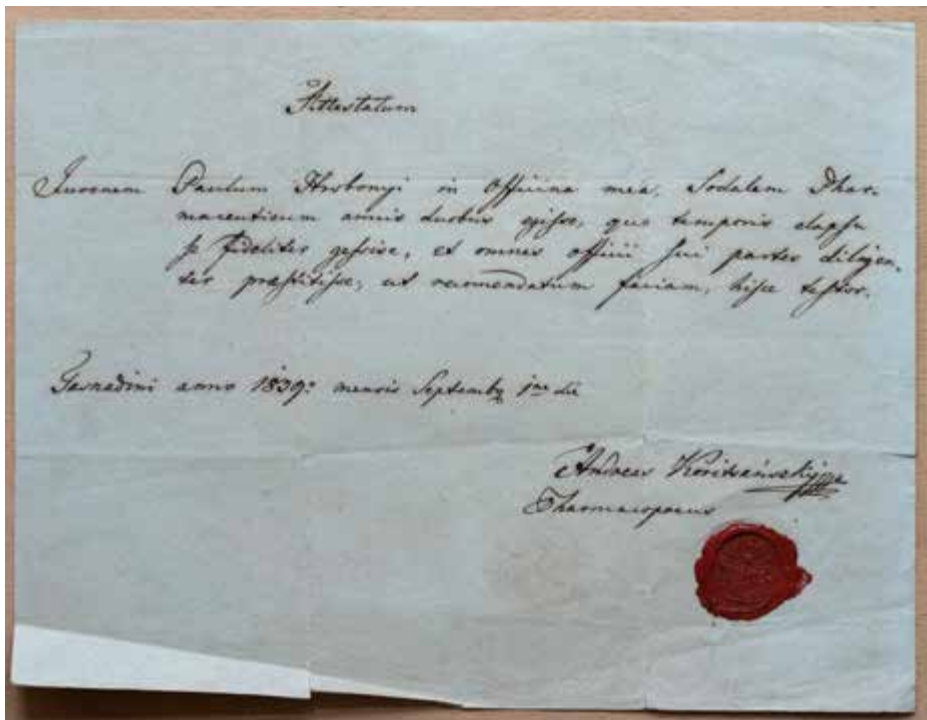 Attestatum
Juvenem Paulum Hrabonyi in Officina mea, Sodalem Phar-
maceuticum annis duobus egisse, quo temporis elapsu
se fideliter gessisse, et omnes officii sui partes diligen-
ter præstitisse, ut recomendatum faciam, hisce testor.
anno 1839: mensis Septemb 1ma die
Andreas
Pharmacopoeus